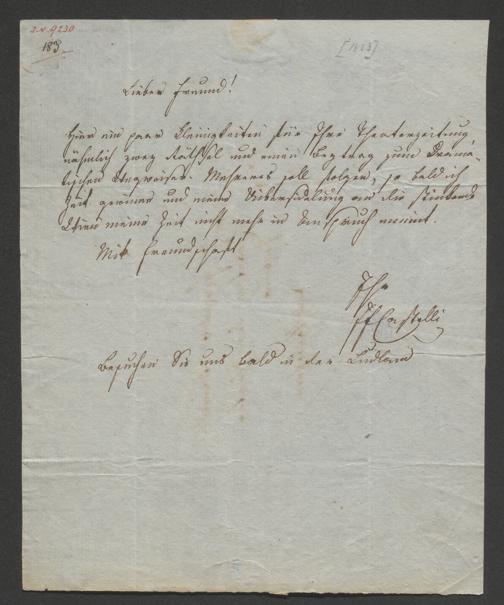 I.N. 9230
183
[1823]
Lieber Freund!
Hier ein paar Kleinigkeiten für Ihre Theaterzeitung
nähmlich zwey Räthsel und einen Beytrag zum Drama-
tischen Wegweiser. Mehreres soll folgen, so bald ich
Zeit gewinne und meine Übersiedelung an die
meine Zeit nicht mehr in Anspruch nimmt.
Mit Freundschaft
Ihr
IFCastelli
Besuchen Sie uns bald in der Ludlam